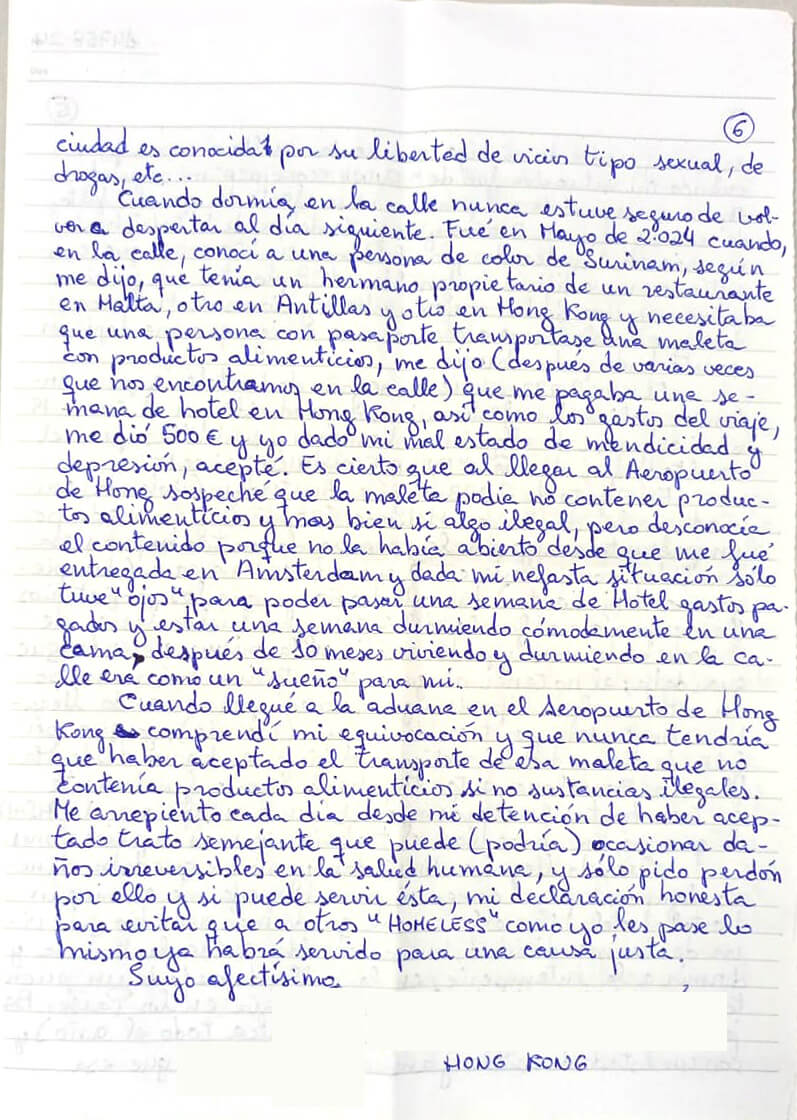 6
ciudad es conocida por su libertad de vicios tipo sexual, de
drogas, etc...
Cuando dormía en la calle nunca estuve seguro de vol-
ver a despertar al día siguiente. Fué en Mayo de 2.024 cuando,
en la calle, conocí a una persona de color de Surinam, según
me dijo, que tenía un hermano propietario de un restaurante
en Malta, otro en Antillas y otro en Hong Kong y necesitaba
que una persona con pasaporte transportase una maleta
con productos alimenticios, me dijo (después de varias veces
que nos encontramos en la calle) que me pagaba una se-
mana de hotel en Hong Kong, así como los gastos del viaje,
me dió 500 € y yo dado mi mal estado de mendicidad y
depresión, acepté. Es cierto que al llegar al Aeropuerto
de Hong sospeché que la maleta podia no contener produc-
tos alimentícios y mas bien si algo ilegal, pero desconocía
el contenido porque no la había abierto desde que me fué
entregada en Amsterdam y dada mi nefasta situación sólo
tuve "ojos" para poder pasar una semana de Hotel gastos pa-
gados y estar una semana durmiendo cómodamente en una
cama, después de 10 meses viviendo y durmiendo en la ca-
lle era como un "sueño" para mi..
Cuando llegué a la aduana en el Aeropuerto de Hong
Kong comprendí mi equivocación y que nunca tendría
que haber aceptado el transporte de esa maleta que no
contenía productos alimenticios si no sustancias ilegales.
Me arrepiento cada día desde mi detención de haber acep-
tado trato semejante que puede (podría) ocasionar da-
ños irreversibles en la salud humana, y sólo pido perdón
por ello y si puede servir ésta, mi declaración honesta
para evitar que a otros "HOMELESS" como yo les pase lo
mismo ya habrá servido para una causa justa.
Suyo afectísimo.
HONG KONG